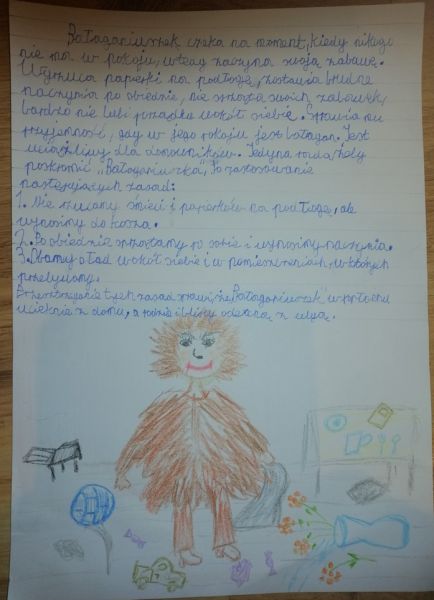 Bałaganiuszek czeka na moment, kiedy nikogo
nie ma w pokoju, wtedy zaczyna swoją zabawę.
Wyrzuca papierki na podłogę, zostawia brudne
naczynia po obiedzie, nie sprząta swoich zabawek,
bardzo nie lubi porządku wokół siebie. Sprawia mu
przyjemność, gdy w jego pokoju jest bałagan. Jest
uciążliwy dla domowników. Jedyna rada, żeby
poskromić "Bałaganiuszka", to zastosowanie
następujących zasad:
1. Nie rzucamy śmieci i papierków na podłogę, ale
wynosimy do kosza.
2. Po obiedzie sprzątamy po sobie i wynosimy naczynia.
3. Dbamy o ład wokół siebie i w pomieszczeniach, w których
przebywamy.
Przestrzeganie tych zasad sprawi, że "Bałaganiuszek" w popłochu
ucieknie z domu, a rodzina i bliscy odetchną z ulgą.